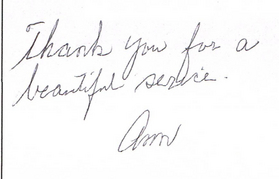 Thank you for a
beautiful service.
Ann